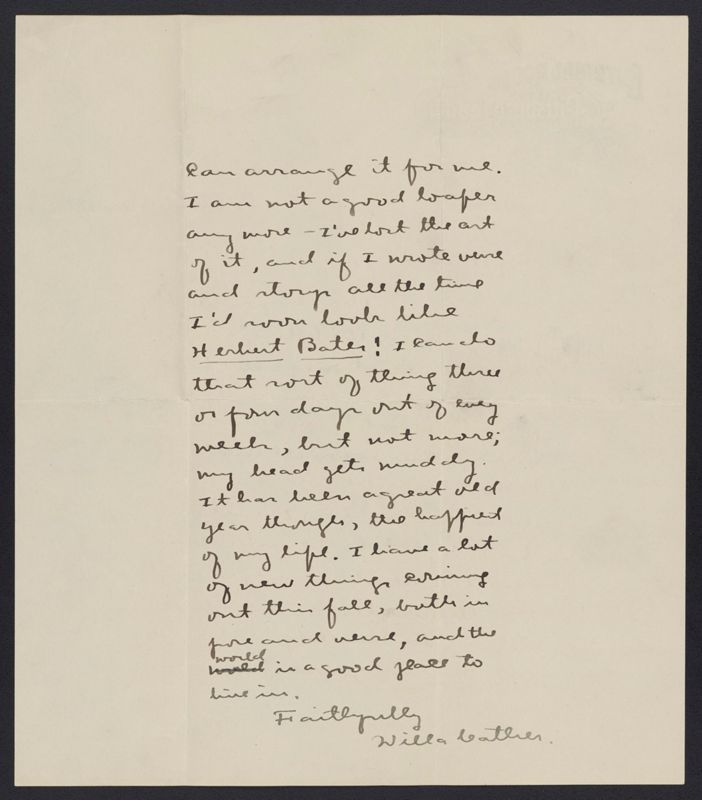 can arrange it for me.
I am not a good loafer
any more - I've lost the art
of it, and if I wrote verse
and storys all the time
I'd soon look like
Herbert Bates! I can do
that sort of thing three
or four days out of every
week, but not more;
my head gets muddy.
It has been a great old
year though, the happiest
of my life. I have a lot
of new things coming
out this fall, both in
prose and verse, and the
world
is a good place to
live in.
Faithfully
Willa Cather.